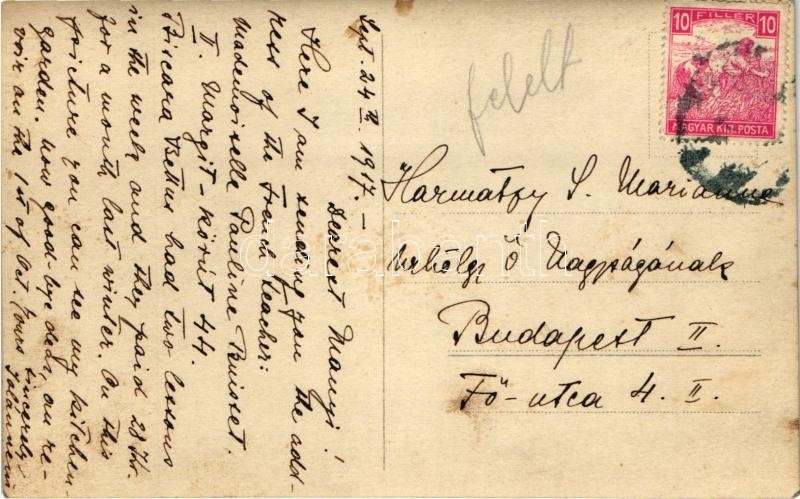 Sept. 24th 1917.-
Dearest Manyi!
Here I am sending you the add-
ress of the French teacher:
Mademoiselle Pauline Buisset.
II. Margit-körút 44.
Piroara Bettus had two lessons
in the week and they paid 28 Kr.
for a month last winter. On this
picture you can see my kitchen-
garden. Now good-bye dear, au re-
voir on the 1st of Oct. Yours
sincerely
felelt
10 FILLÉR 10
MAGYAR KIR. POSTA
Harmatzy S. Marianne
úrhölgy Ő Nagyságának
Budapest II.
Fő-utca 4. I.
darabanth